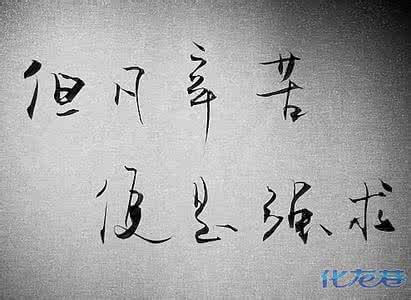 但凡辛苦
便是强求
化龙巷